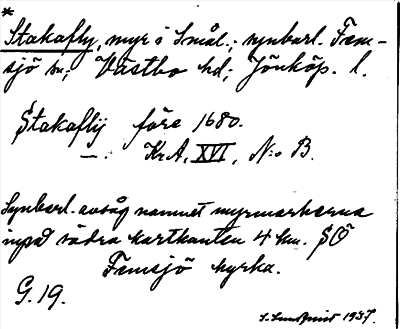 *
Stakafly, myr i Smål.; synbarl. Fem-
sjö sn; Västbo hd; Jönköp. l.
Stakaflÿ före 1680.
—:— Kr A, XVI, N:o B.
Synbarl. avsåg namnet myrmarkerna
inpå södra kartkanten 4 km. SÖ
Femsjö kyrka.
G. 19.
S. Sundquist 1937.